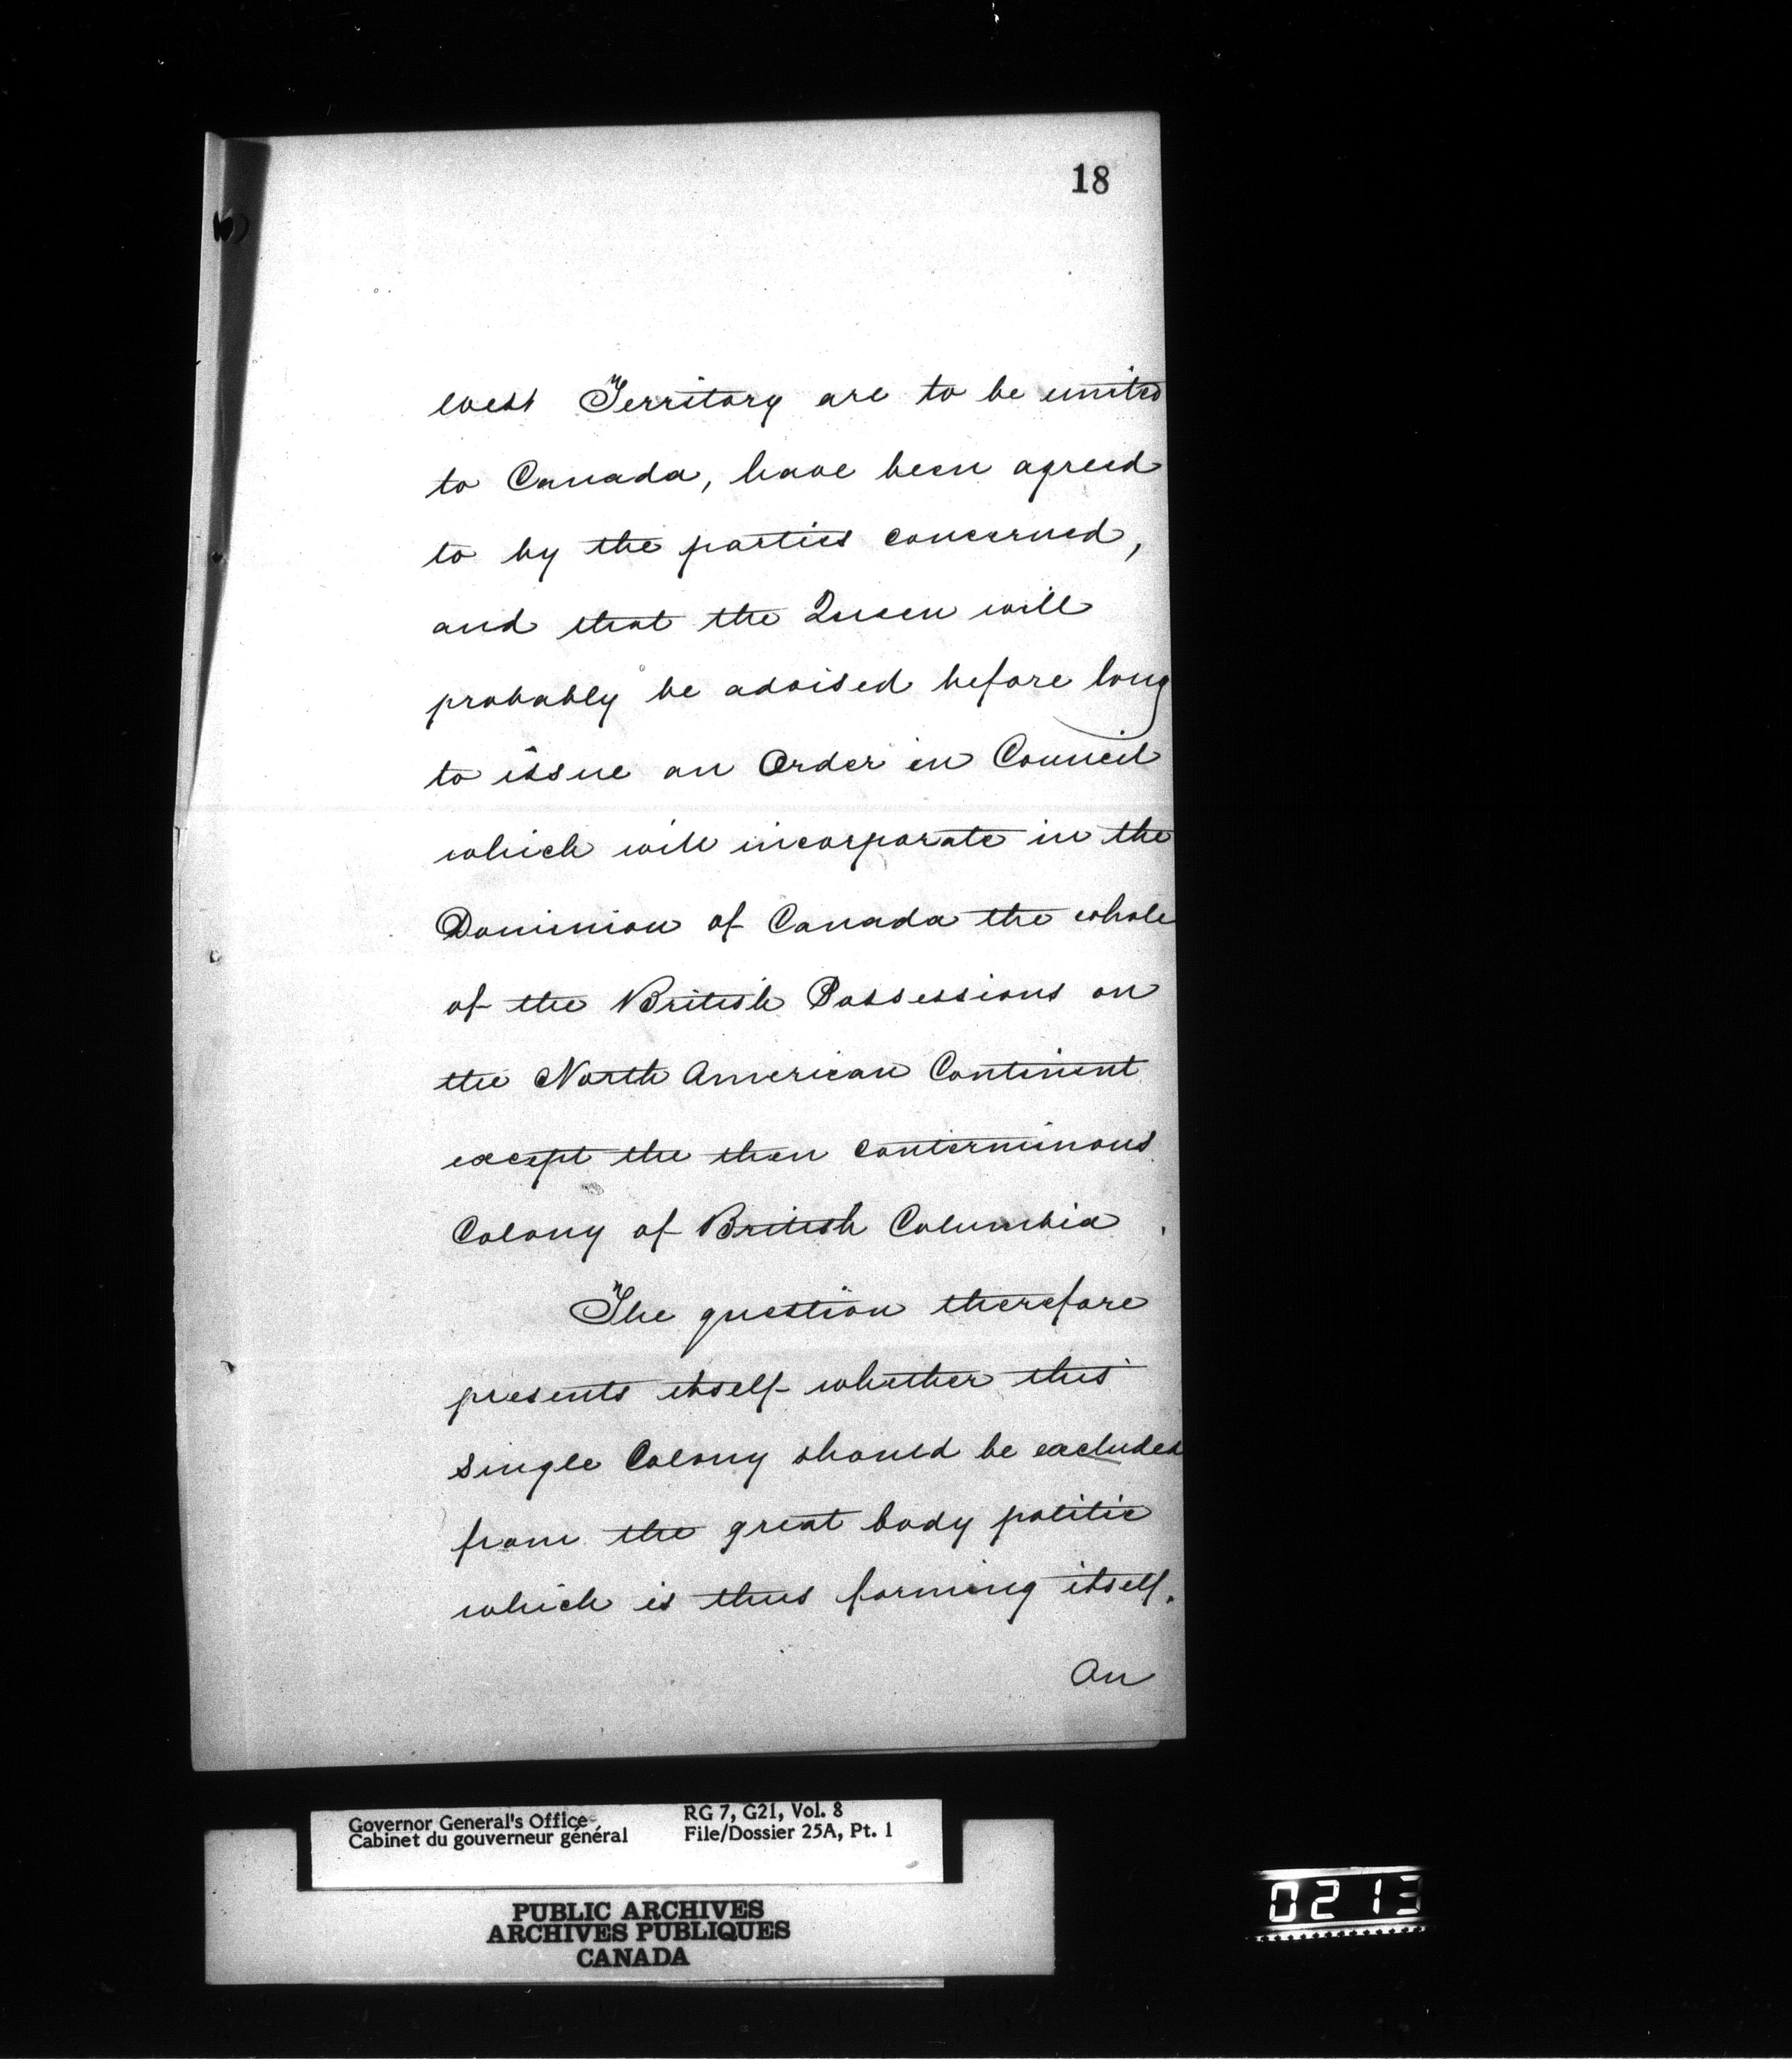 18
west Territory are to be united
to Canada, have been agreed
to by the parties concerned,
and that the Queen will
probably be advised before long
to issue an Order in Council
which will incorporate in the
Dominion of Canada the whole
of the British Possessions on
the North American Continent
except the then conterminous
Colony of British Columbia.
The question therefore
presents itself whether this
single Colony should be excluded
from the great body politic
which is thus forming itself.
An
Governor General's Office RG 7, G21, Vol. 8
Cabinet du gouverneur général File/Dossier 25A, Pt. 1
PUBLIC ARCHIVES
ARCHIVES PUBLIQUES
CANADA
0213